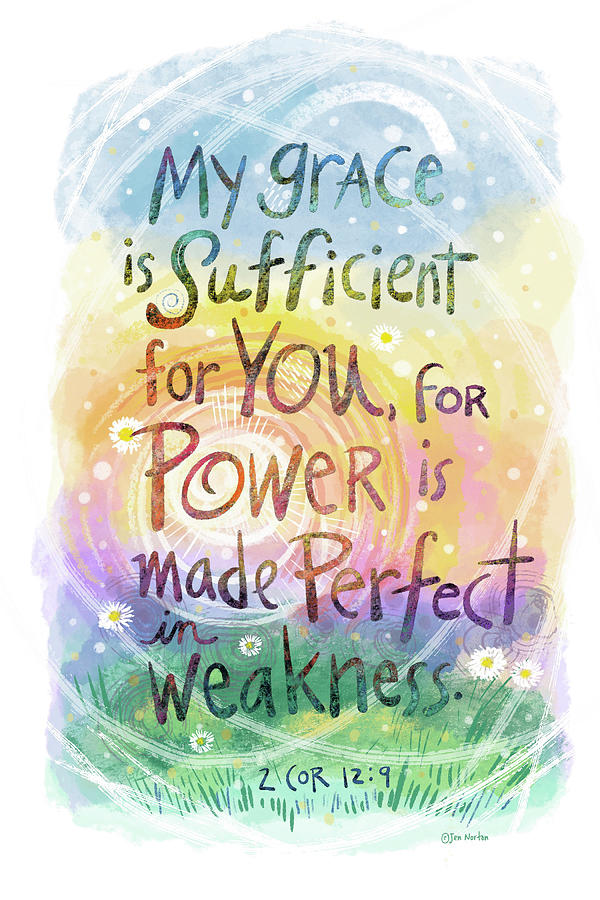 My grace
is Sufficient
for YOU, for
Power is
made Perfect
in
weakness.
2 COR 12:9
©Jen Norton